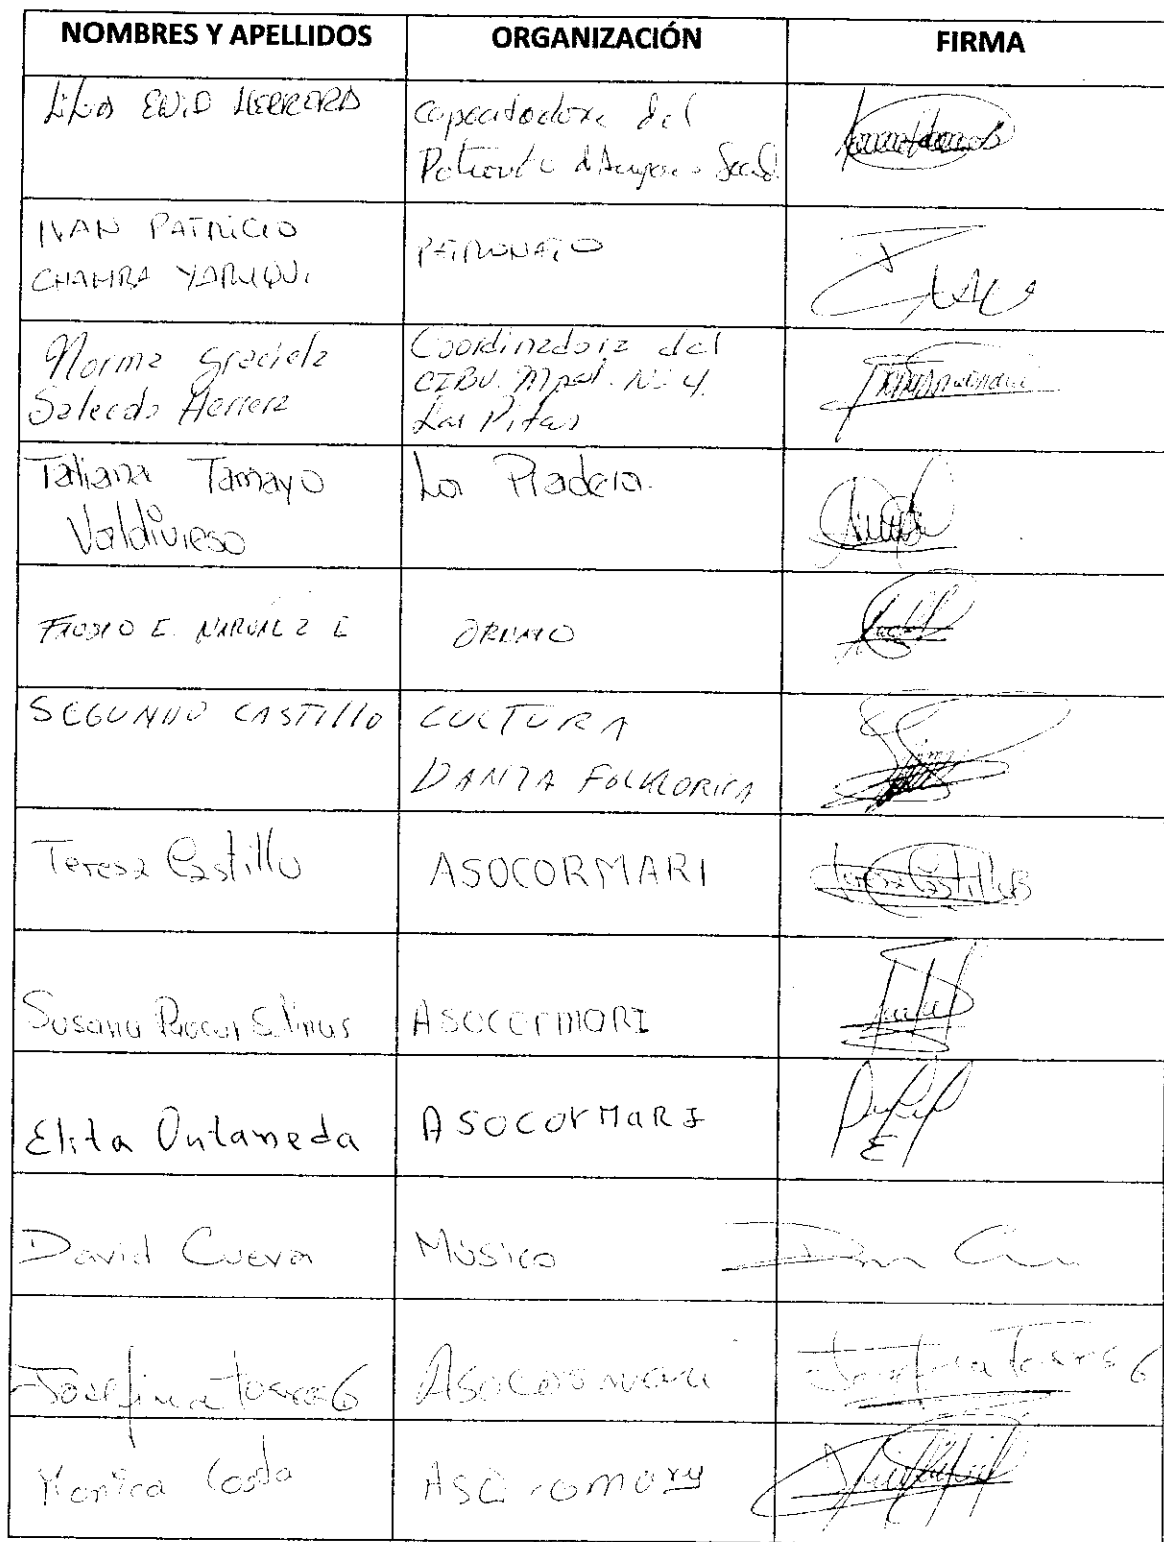 NOMBRES Y APELLIDOS ORGANIZACIÓN FIRMA
Lilia ENID HERRERA
Capacitadora del
Patronato d Amparo Social
IVAN PATRICIO
CHAMBA YARUQUI
PATRONATO
Norma Graciela
Salcedo Herrera
Coordinadora del
CIBV. Mpal. Nº 4
Las Pitas
Tatiana Tamayo
Valdivieso
La Pradera.
E. NARVAEZ E
ORNATO
SEGUNDO CASTILLO
CULTURA
DANZA FOLKLORICA
Teresa Castillo
ASOCORMARI
Teresa Castillo B
Susana Salinas
ASOCORMARI
Elita Ontaneda
ASOCORMARI
David Cueva
Músico
Josefina Torres G
Asocoromari
Josefina Torres G
Monica Costa